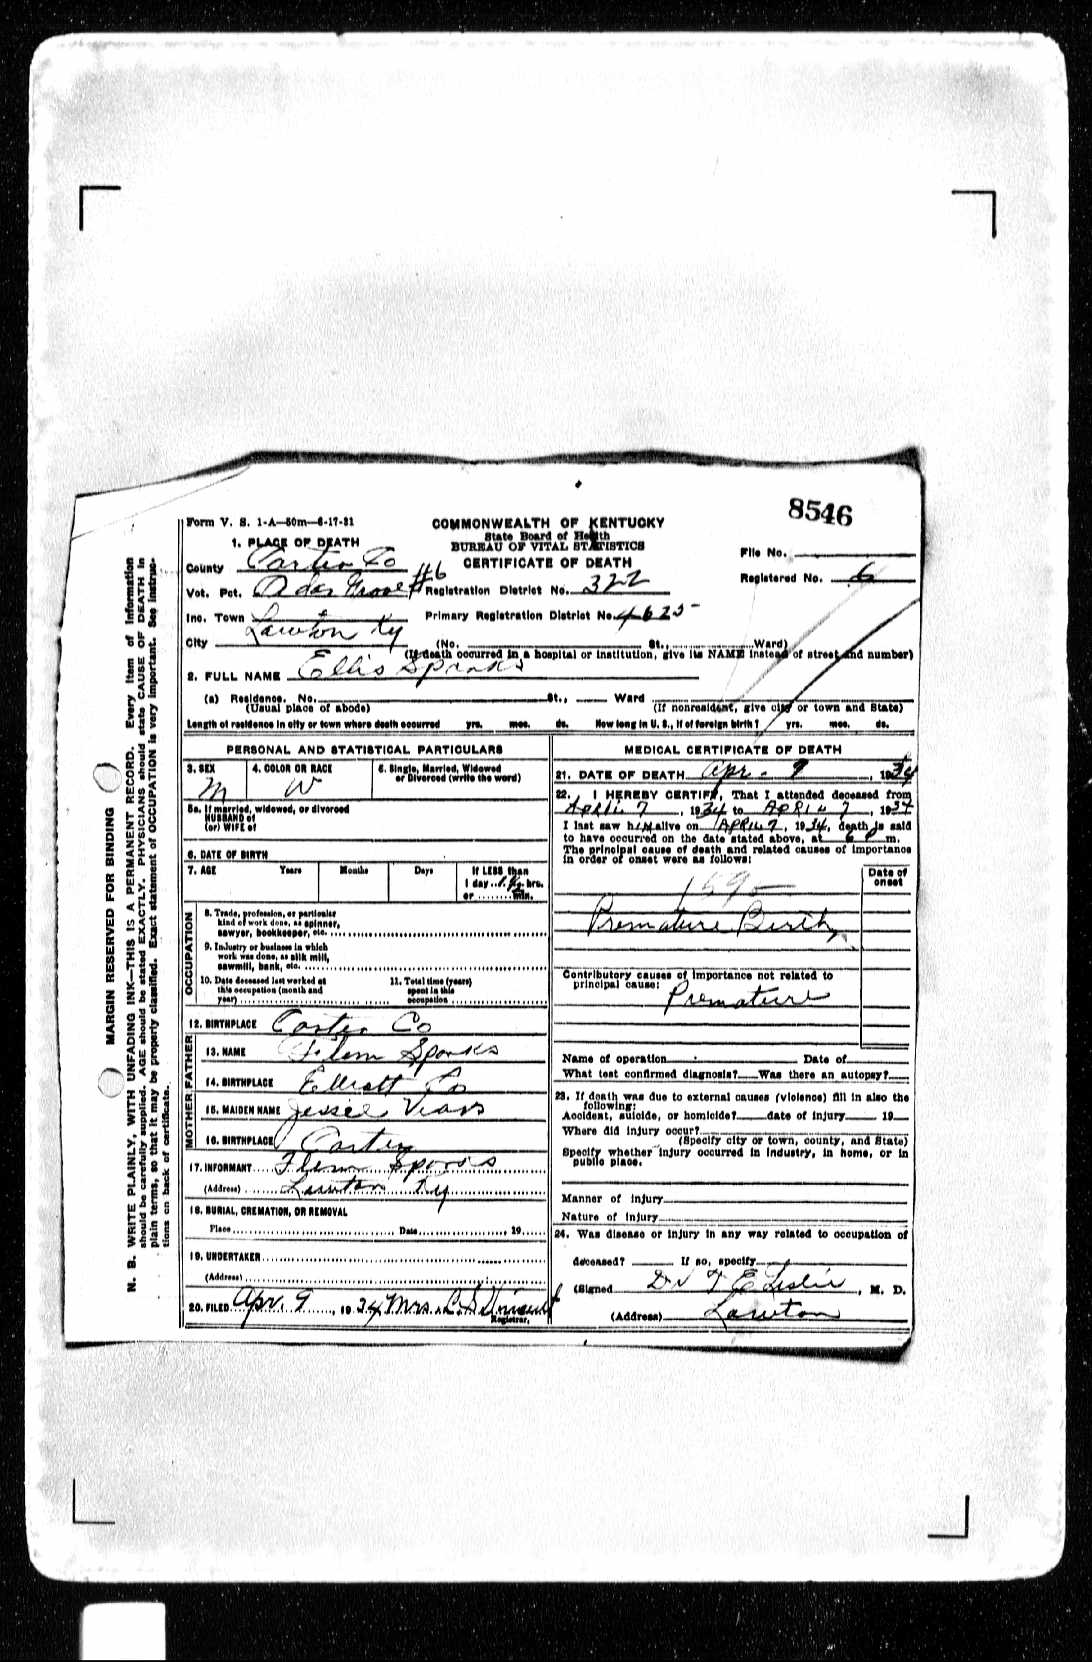 8546
Form V. S. 1-A—50m—6-17-31
COMMONWEALTH OF KENTUCKY
State Board of Health
BUREAU OF VITAL STATISTICS
CERTIFICATE OF DEATH
File No.
Registered No. 6
1. PLACE OF DEATH
County Carter Co
Vot. Pct. #6
Registration District No. 322
Inc. Town
Primary Registration District No. 4625
City Lawton Ky (No. St., Ward)
(If death occurred in a hospital or institution, give its NAME instead of street and number)
2. FULL NAME Ellis Sparks
(a) Residence. No. St., Ward
(Usual place of abode) (If nonresident, give city or town and State)
Length of residence in city or town where death occurred yrs. mos. ds. How long in U. S., if of foreign birth? yrs. mos. ds.
PERSONAL AND STATISTICAL PARTICULARS
3. SEX M
4. COLOR OR RACE W
5. Single, Married, Widowed
or Divorced (write the word)
5a. If married, widowed, or divorced
HUSBAND of
(or) WIFE of
6. DATE OF BIRTH
7. AGE Years Months Days If LESS than
1 day hrs.
or min.
OCCUPATION
8. Trade, profession, or particular
kind of work done, as spinner,
sawyer, bookkeeper, etc.
9. Industry or business in which
work was done, as silk mill,
sawmill, bank, etc.
10. Date deceased last worked at
this occupation (month and
year)
11. Total time (years)
spent in this
occupation
12. BIRTHPLACE Carter Co
FATHER
13. NAME Flem Sparks
14. BIRTHPLACE Elliott Co
MOTHER
15. MAIDEN NAME Jessie
16. BIRTHPLACE Carter
17. INFORMANT Flem Sparks
(Address) Lawton Ky
18. BURIAL, CREMATION, OR REMOVAL
Place Date 19
19. UNDERTAKER
(Address)
20. FILED Apr. 9, 1934 Mrs.
Registrar.
MEDICAL CERTIFICATE OF DEATH
21. DATE OF DEATH Apr. 9, 1934
22. I HEREBY CERTIFY, That I attended deceased from
April 7, 1934 to April 7, 1934
I last saw him alive on April 7, 1934, death is said
to have occurred on the date stated above, at 6 P m.
The principal cause of death and related causes of importance
in order of onset were as follows:
Date of
onset
159
Premature Birth
Contributory causes of importance not related to
principal cause:
Premature
Name of operation Date of
What test confirmed diagnosis? Was there an autopsy?
23. If death was due to external causes (violence) fill in also the
following:
Accident, suicide, or homicide? date of injury 19
Where did injury occur?
(Specify city or town, county, and State)
Specify whether injury occurred in industry, in home, or in
public place.
Manner of injury
Nature of injury
24. Was disease or injury in any way related to occupation of
deceased? If so, specify
(Signed Dr T E Leslie, M. D.
(Address) Lawton
MARGIN RESERVED FOR BINDING
N. B. WRITE PLAINLY, WITH UNFADING INK—THIS IS A PERMANENT RECORD. Every item of information
should be carefully supplied. AGE should be stated EXACTLY. PHYSICIANS should state CAUSE OF DEATH in
plain terms, so that it may be properly classified. Exact statement of OCCUPATION is very important. See instruc-
tions on back of certificate.